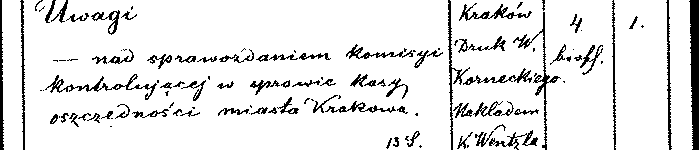 Uwagi
— nad sprawozdaniem komisyi
kontrolującej w sprawie kasy
oszczędności miasta Krakowa.
13 S.
Kraków
Druk W.
Korneckiego.
Nakładem
K. Wentzla.
4
brosz.
1.